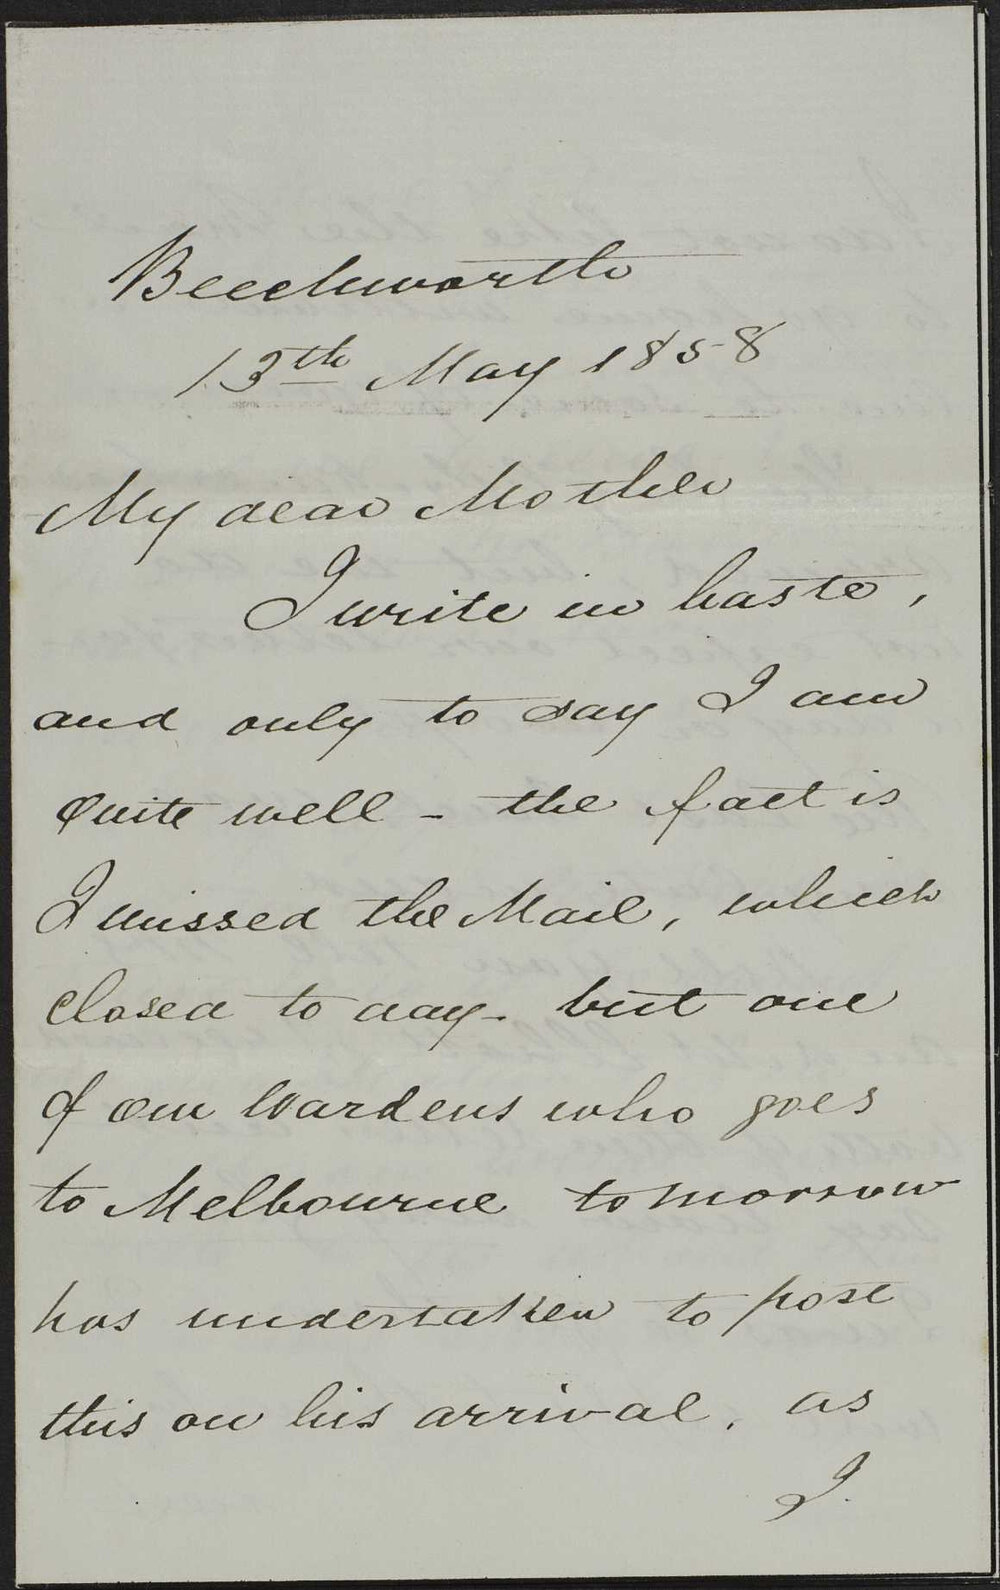 Beechworth
13th May 1858
My dear Mother
I write in haste,
and only to say I am
quite well - the fact is
I missed the Mail, which
closed to day - but one
of our Wardens who goes
to Melbourne tomorrow
has undertaken to post
this on his arrival, as
I.